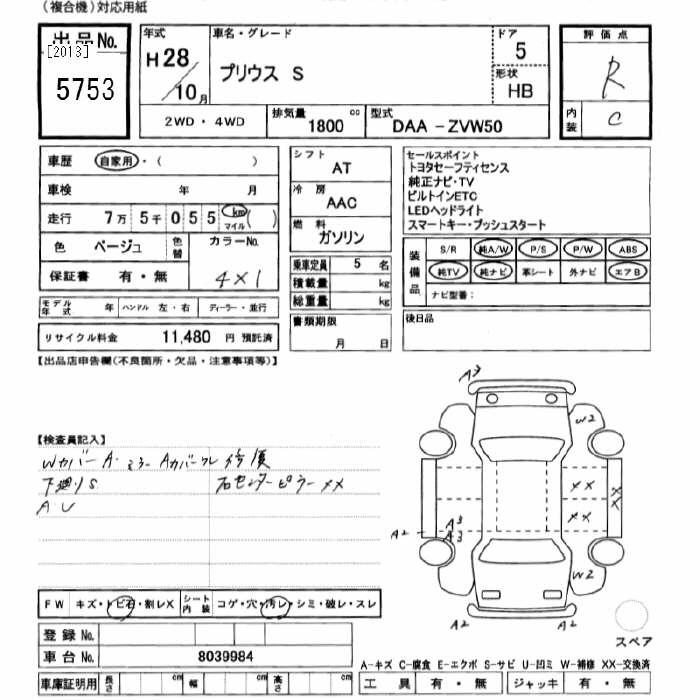 (複合機)対応用紙
出品No.
[2013]
5753
年式
H28
10月
車名・グレード
プリウス S
ドア
5
形状
HB
評価点
R
内装
C
2WD・4WD
排気量
1800 cc
型式
DAA-ZVW50
車歴 自家用・( )
車検 年 月
走行 7万 5千 055 km マイル ( )
色 ベージュ 色替 カラーNo.
4X1
保証書 有・無
モデル年式 年 ハンドル 左・右 ディーラー・並行
リサイクル料金 11,480 円 預託済
シフト
AT
冷房
AAC
燃料
ガソリン
乗車定員 5 名
積載量 kg
総重量 kg
書類期限
月 日
セールスポイント
トヨタセーフティセンス
純正ナビ・TV
ビルトインETC
LEDヘッドライト
スマートキー・プッシュスタート
装備品
S/R 純A/W P/S P/W ABS
純TV 純ナビ 革シート 外ナビ エアB
ナビ型番:
後日品
【出品店申告欄(不良箇所・欠品・注意事項等)】
【検査員記入】
Wカバー A・ミラー Aカバーワレ 修復
下廻りS 右センターピラーXX
A U
A3
W2
XX
XX
XX
A3
A3
A2
A2
W2
A2
A2
スペア
FW キズ・トビ石・割レX シート内装 コゲ・穴・汚レ・シミ・破レ・スレ
登録No.
車台No. 8039984
車庫証明用 長さ cm 幅 cm 高さ cm
A-キズ C-腐食 E-エクボ S-サビ U-凹ミ W-補修 XX-交換済
工具 有・無 ジャッキ 有・無